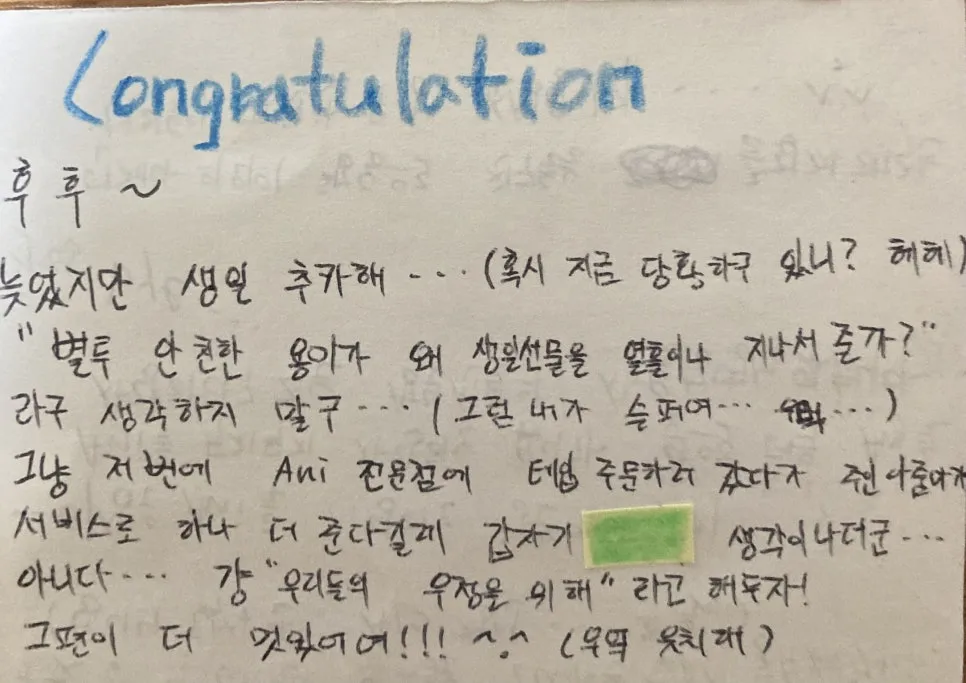 Congratulation
후 후 ~
늦었지만 생일 추카해 ··· (혹시 지금 당황하구 있니? 헤헤)
"별루 안 친한 용아가 왜 생일선물을 열흘이나 지나서 준가?"
라구 생각하지 말구 ··· (그럼 내가 슬퍼여 ··· ···)
그냥 저번에 Ani 전문점에 테입 주문하러 갔다가 쥔아줌마가
서비스로 하나 더 준다길레 갑자기 생각이나더군 ···
아니다 ··· 걍 "우리들의 우정을 위해" 라고 해두자!
그편이 더 멋있어여!!! ^.^ (우엑 웃치래)